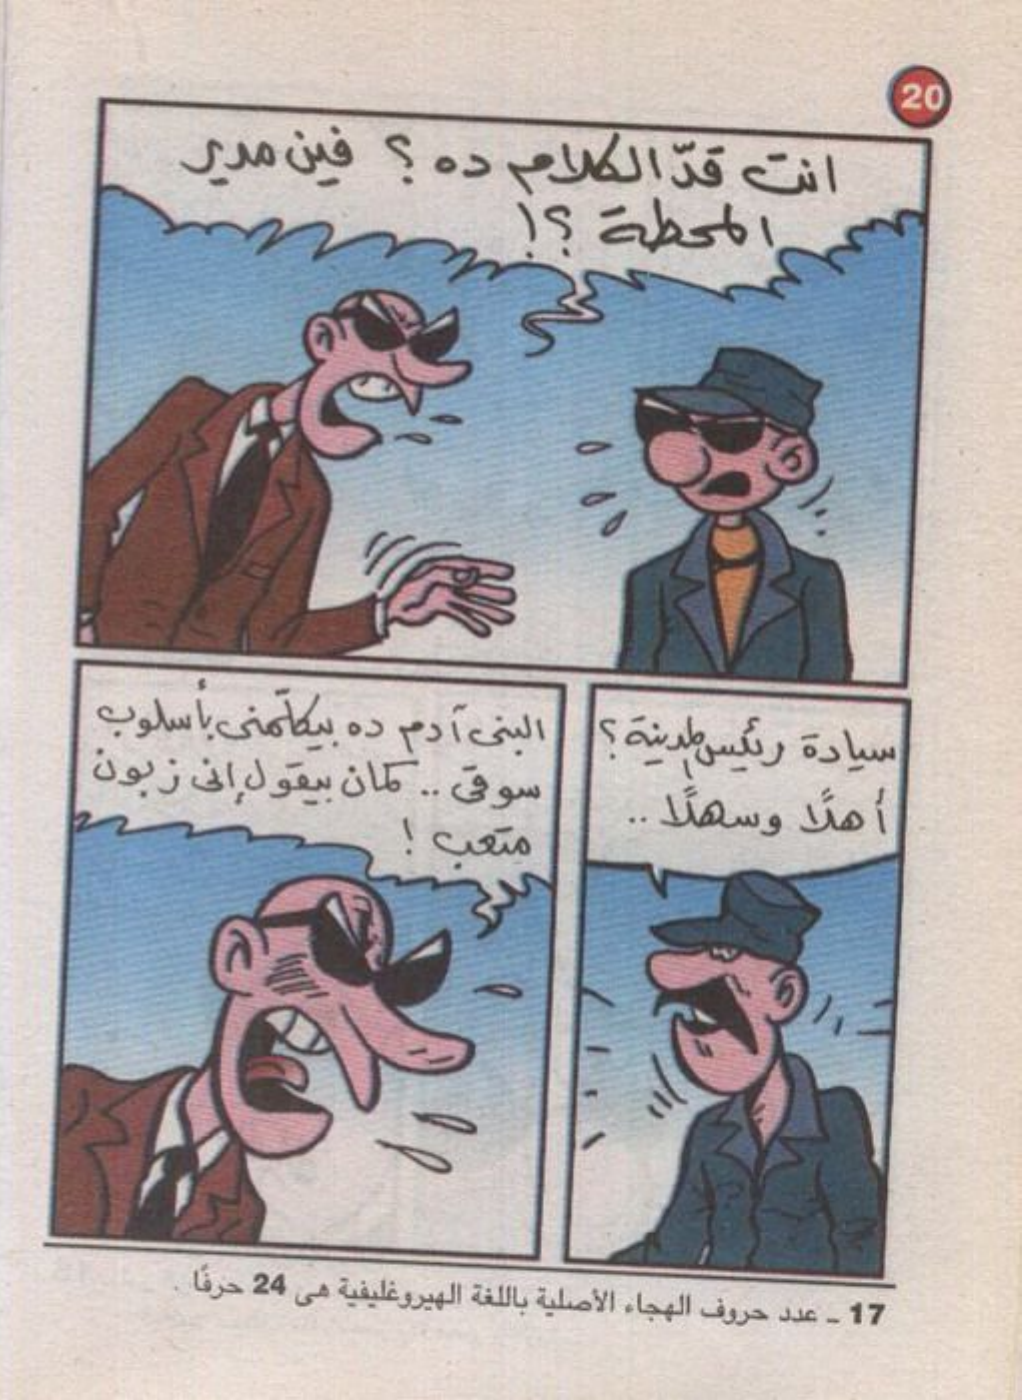 20
انت قدّ الكلام ده ؟ فين مدير
المحطة ؟!
سيادة رئيس المدينة ؟
أهلًا وسهلًا ..
البنى آدم ده بيكلّمنى بأسلوب
سوقى .. كمان بيقول إنى زبون
متعب !
17 ــ عدد حروف الهجاء الأصلية باللغة الهيروغليفية هى 24 حرفًا .